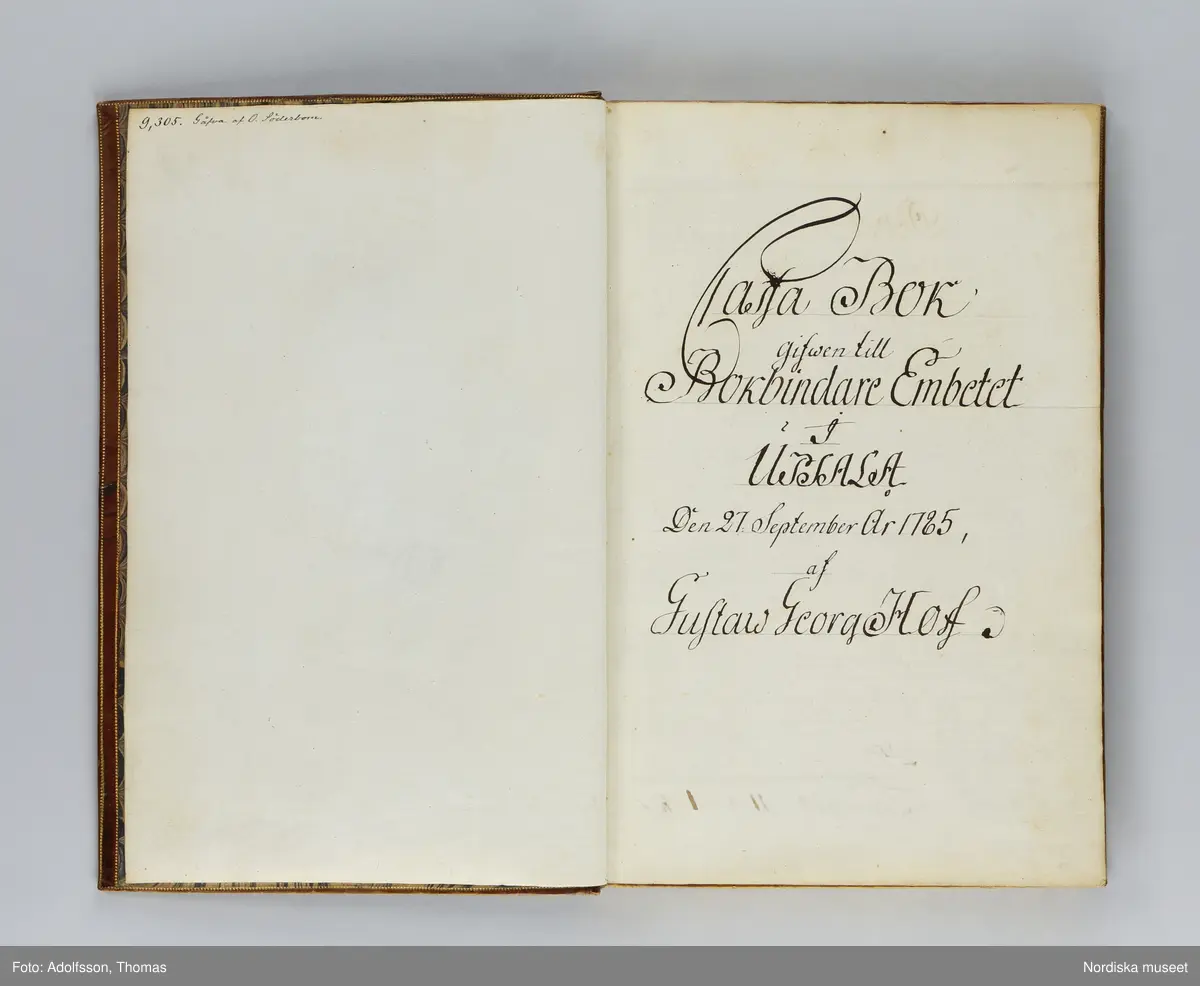 9,305. Gåfva af O. Söderbom.
Cassa Bok
gifwen till
Bokbindare Embetet
i
UPSALA
Den 27. September År 1785,
af
Gustaw Georg Hoff
Foto: Adolfsson, Thomas
Nordiska museet